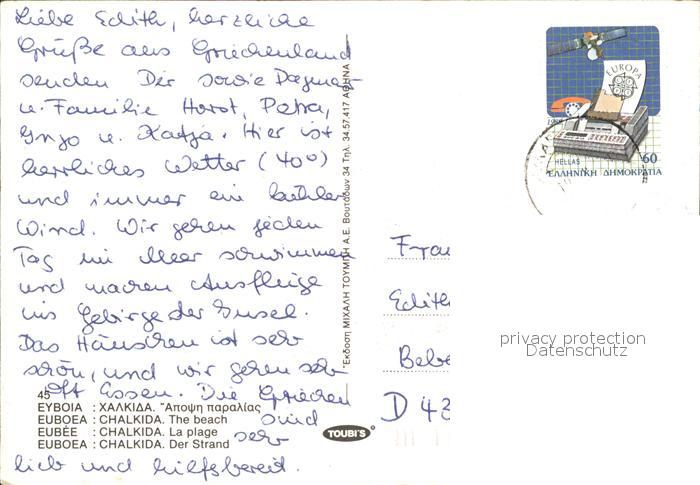 Liebe Edith, herzliche
Grüße aus Griechenland
senden Dir sowie Dagmar
u. Familie Horst, Petra,
Ingo u. Katja. Hier ist
herrliches Wetter (40°)
und immer ein kühler
Wind. Wir gehen jeden
Tag im Meer schwimmen
und machen Ausflüge
ins Gebirge der Insel.
Das Häuschen ist sehr
schön, und wir gehen sehr
oft Essen. Die Griechen
sind
sehr
lieb und hilfsbereit.
45
ΕΥΒΟΙΑ : ΧΑΛΚΙΔΑ. "Αποψη παραλίας
EUBOEA : CHALKIDA. The beach
EUBÉE : CHALKIDA. La plage
EUBOEA : CHALKIDA. Der Strand
TOUBI'S
Έκδοση ΜΙΧΑΛΗ ΤΟΥΜΠΗ Α.Ε. Βουτάδων 34 Τηλ. 34 57 417 ΑΘΗΝΑ
EUROPA
1988
HELLAS
60
ΕΛΛΗΝΙΚΗ ΔΗΜΟΚΡΑΤΙΑ
Frau
Edith
Bebe
D 43
privacy protection
Datenschutz